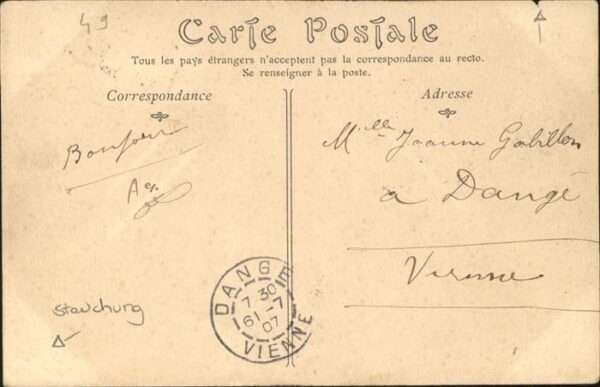 49
Carte Postale
Tous les pays étrangers n'acceptent pas la correspondance au recto.
Se renseigner à la poste.
Correspondance
Bonjour
Adresse
Melle Jeanne Gobillon
a Dangé
Vienne
DANGE
7 30
61 -7
07
VIENNE
stauchung